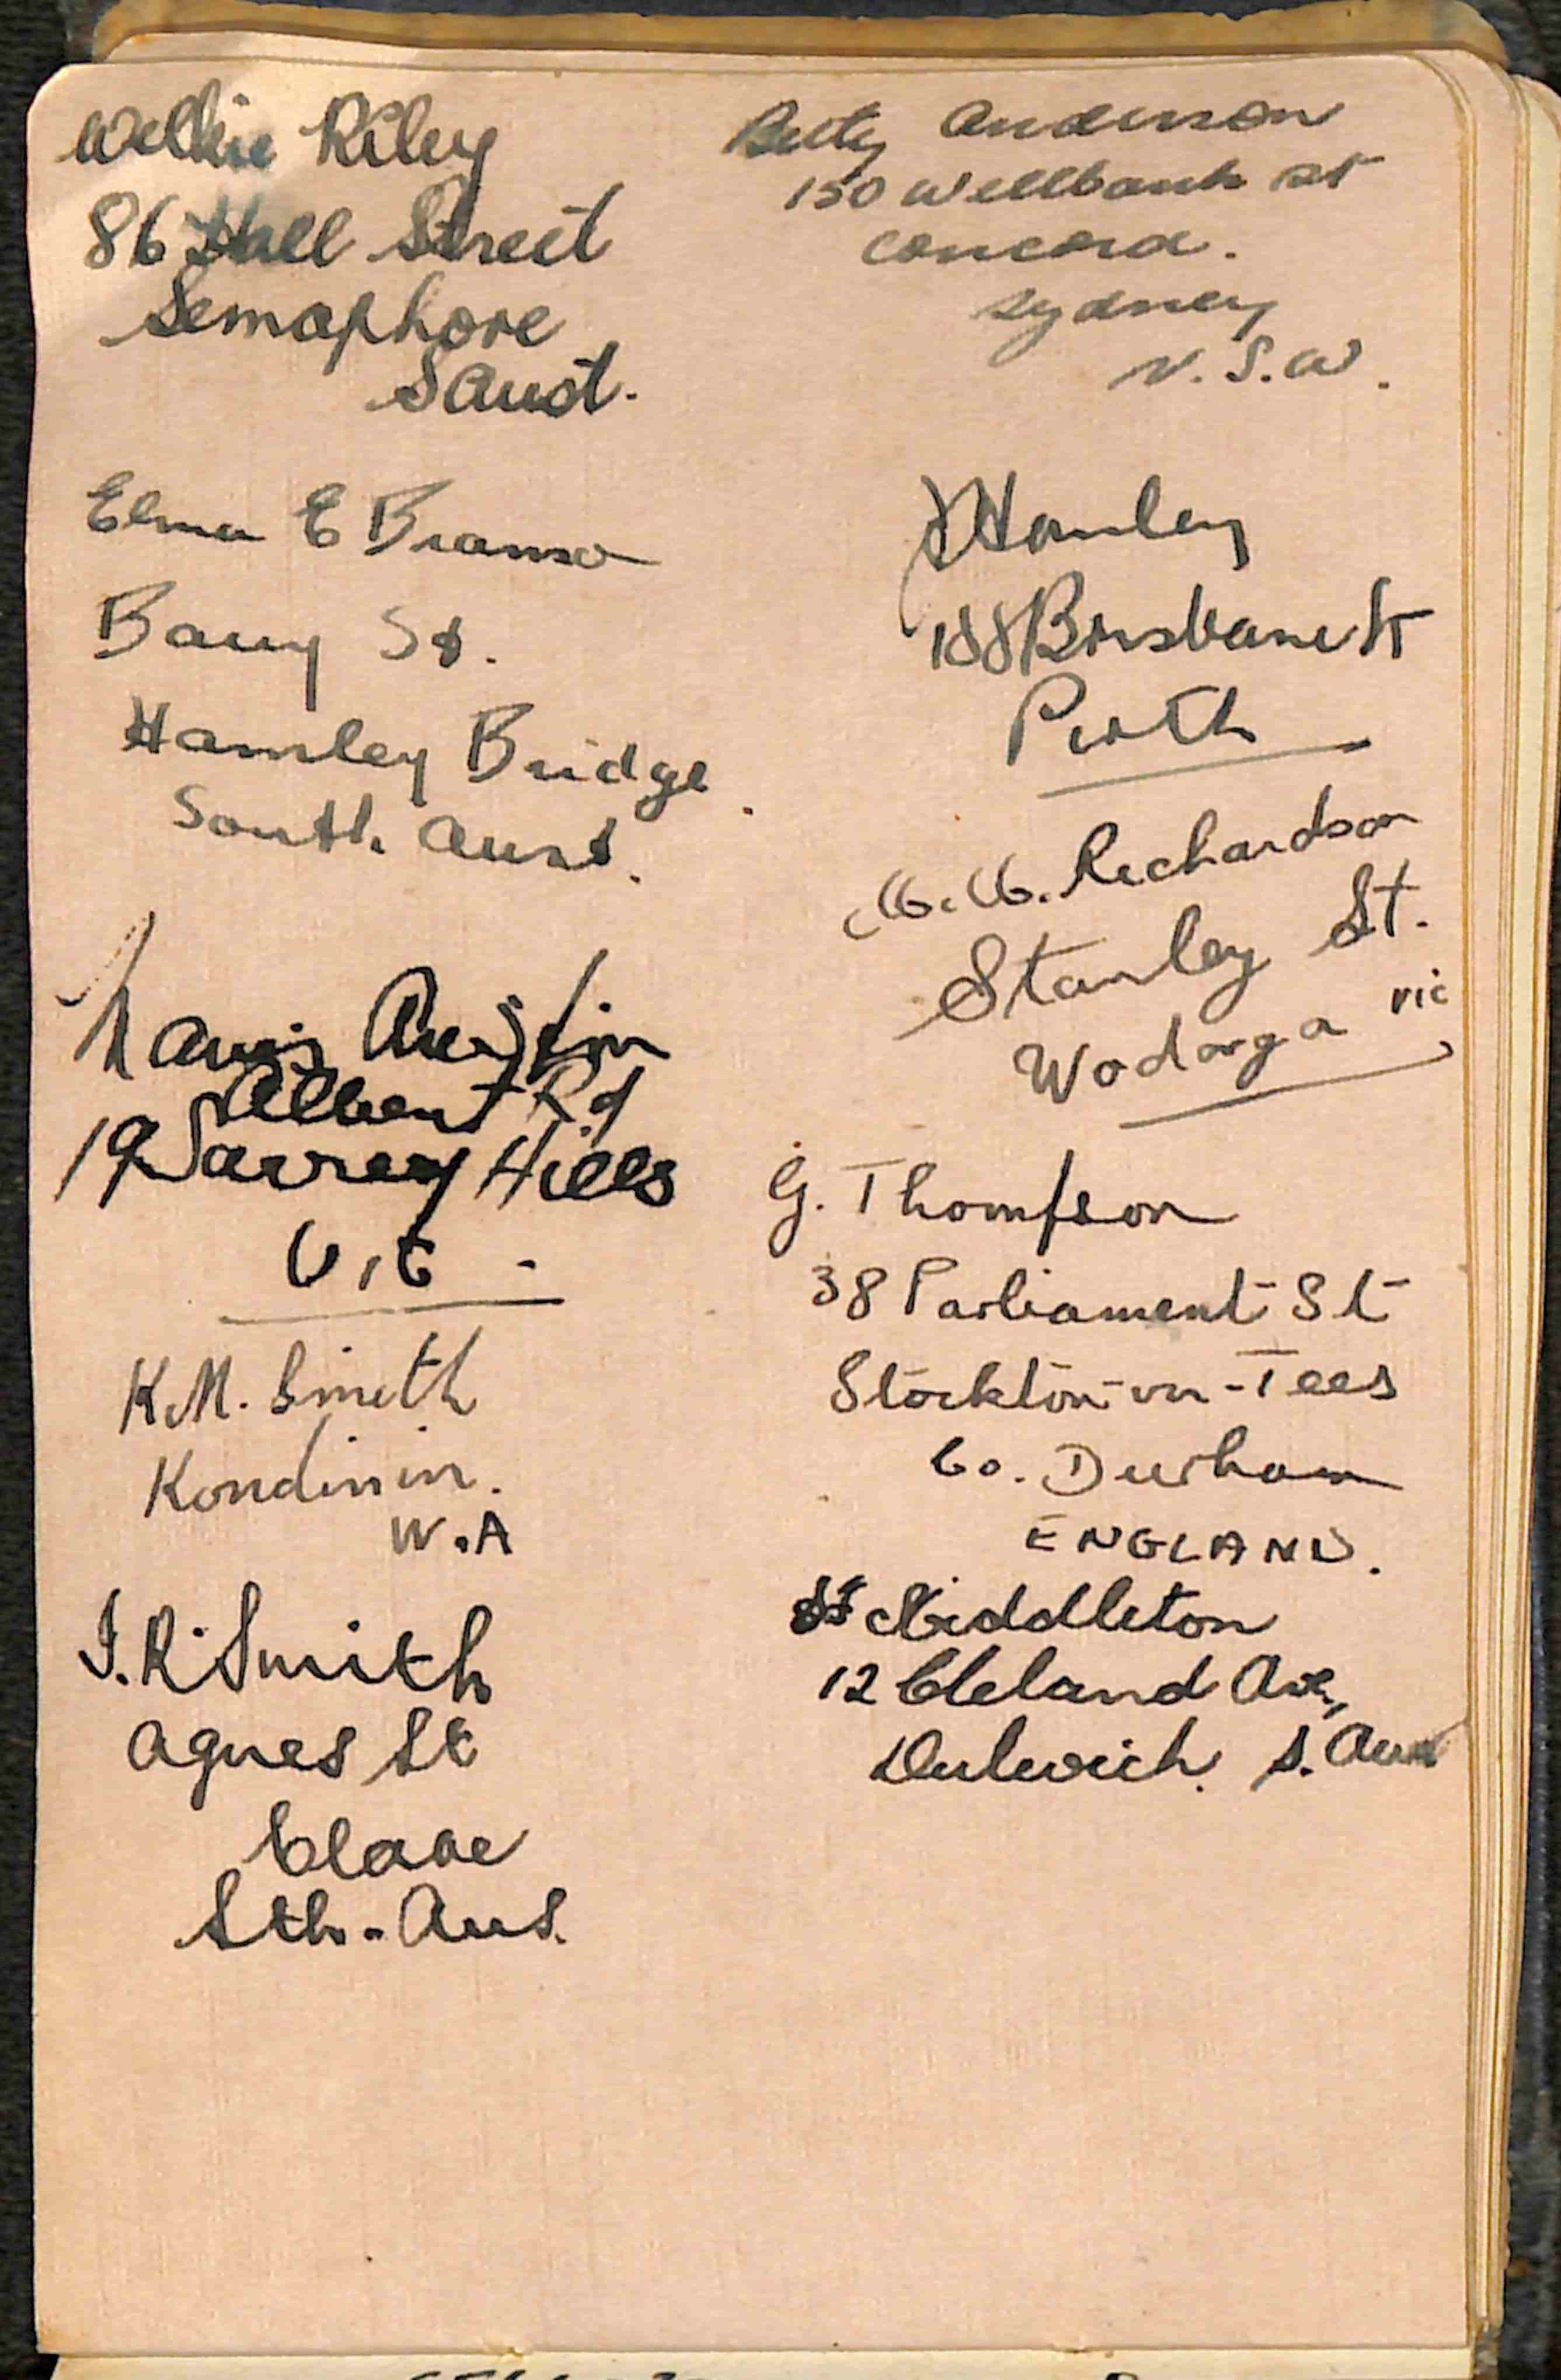 Willie Riley
86 Hall Street
Semaphore
S Aust.
Elma E
Barry St.
Hamley Bridge.
South Aust.
Mavis Austin
Albert Rd
19 Surrey Hills
Vic -
K.M. Smith
Kondinin.
W.A
J. R. Smith
Agnes St
Clare
Sth. Aus.
Betty Anderson
150 Wellbank St
Concord.
Sydney
N.S.W.
Hanley
188 Brisbane St
Perth
M. M. Richardson
Stanley St.
Wodonga Vic
G. Thompson
38 Parliament St
Stockton-on-Tees
Co. Durham
ENGLAND.
Middleton
12 Cleland Ave,
Dulwich. S. Aus